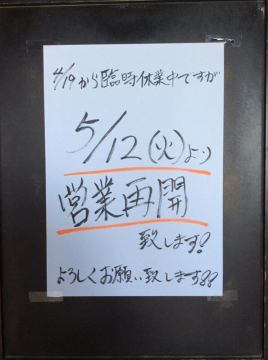 4/19から臨時休業中ですが
5/12(火)より
営業再開
致します!
よろしくお願い致します!!